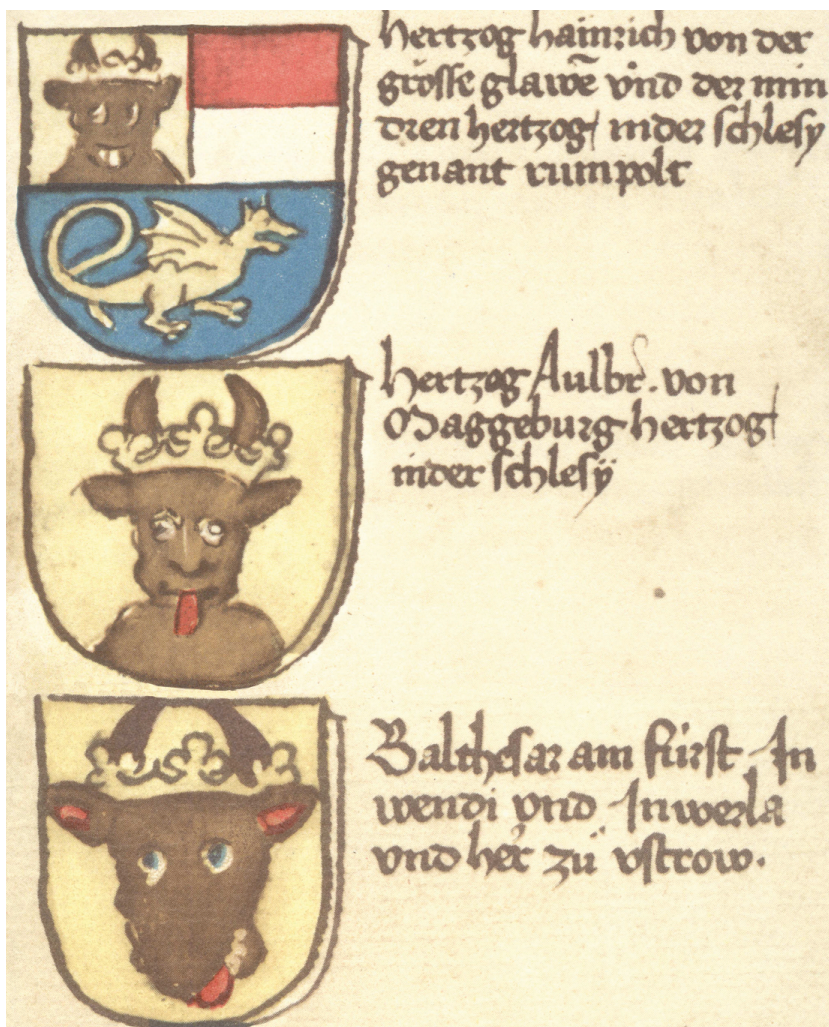 hertzog hainrich von der
grösse glawē vnd der min
dren hertzog inder schlesy
genant rumpolt
hertzog Aulbr. von
Maggeburg hertzog
inder schlesÿ
Balthesar am fürst In
wendi vnd Inwerla
vnd her zü vstrow.